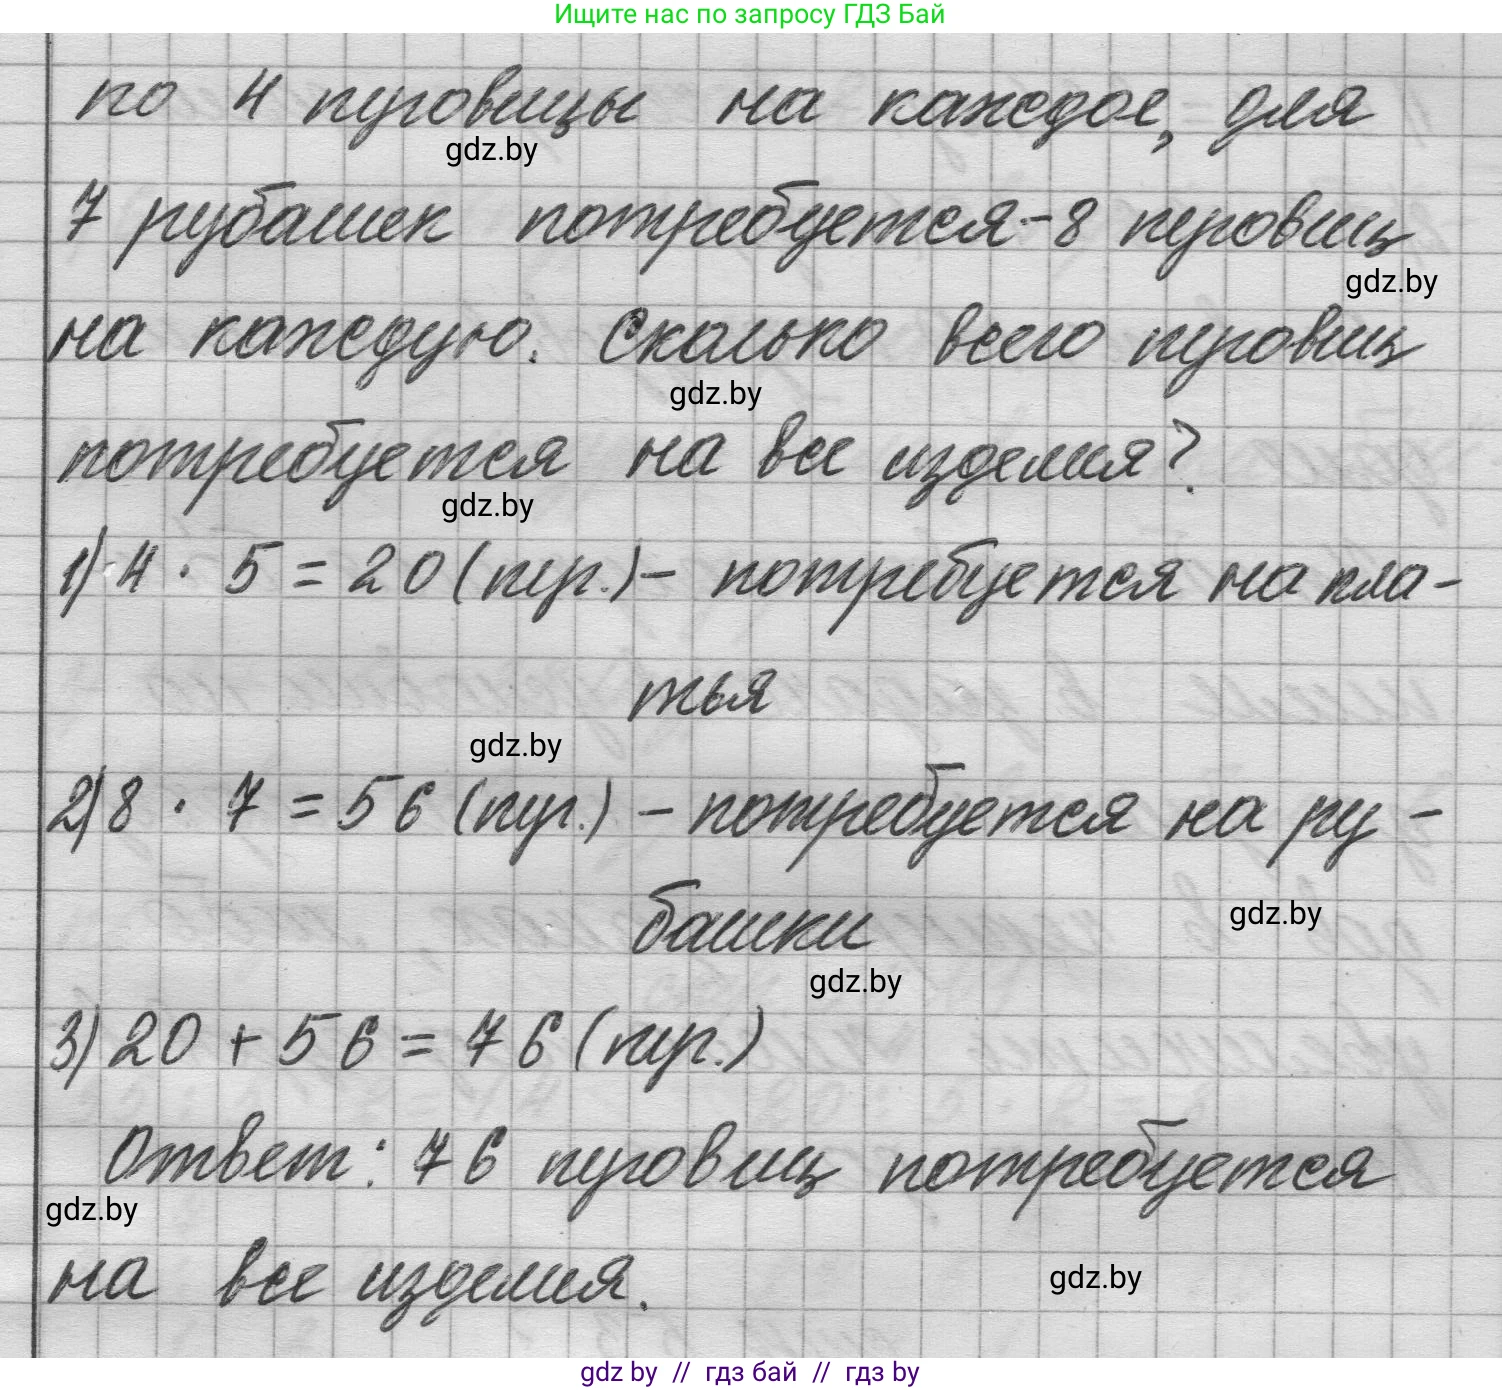 Ищите нас по запросу ГДЗ Бай
по 4 пуговицы на каждое, для
gdz.by
7 рубашек потребуется - 8 пуговиц
gdz.by
на каждую. Сколько всего пуговиц
gdz.by
потребуется на все изделия?
gdz.by
1) 4 · 5 = 20 (пуг.) - потребуется на пла-
тья
gdz.by
2) 8 · 7 = 56 (пуг.) - потребуется на ру-
башки
gdz.by
gdz.by
3) 20 + 56 = 76 (пуг.)
Ответ: 76 пуговиц потребуется
gdz.by
на все изделия.
gdz.by
gdz by // гдз бай // гдз by